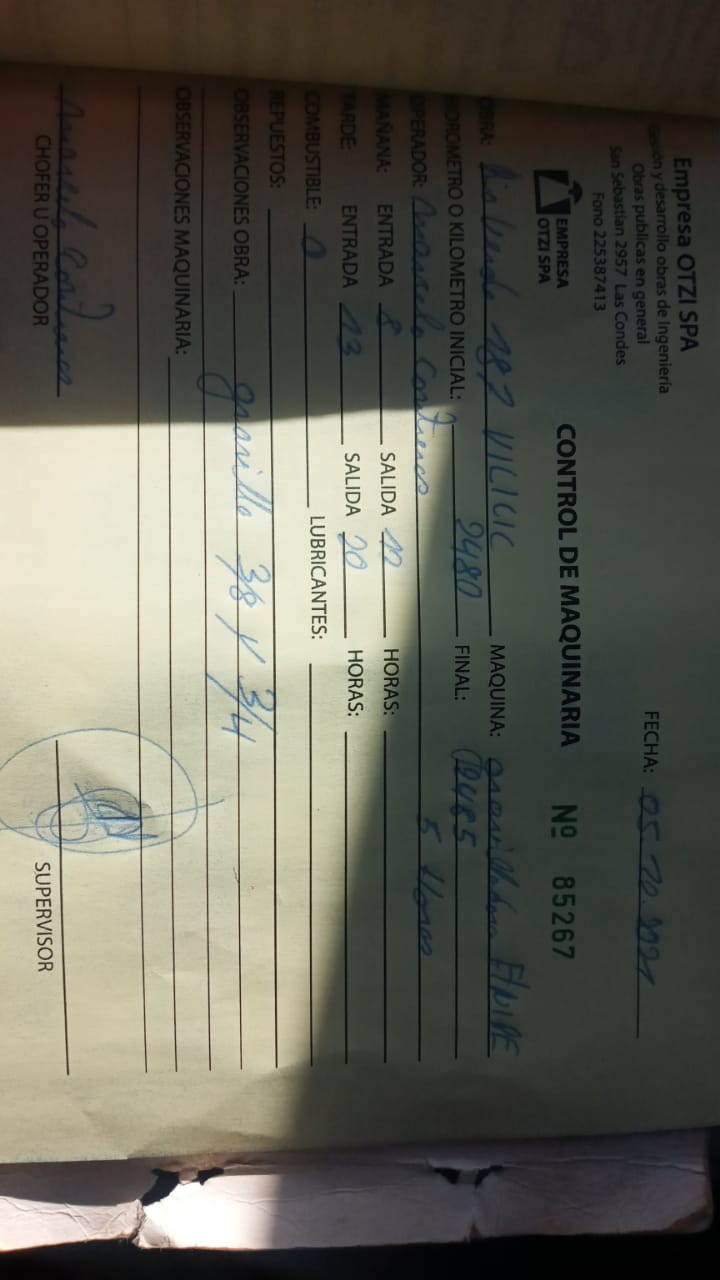 Empresa OTZI SPA
Gestión y desarrollo obras de Ingeniería
Obras publicas en general
San Sebastian 2957 Las Condes
Fono 225387413
FECHA: 05.10.2021
EMPRESA
OTZI SPA
CONTROL DE MAQUINARIA
Nº 85267
OBRA: Rio Verde 187 MAQUINA: gravilladora
HOROMETRO O KILOMETRO INICIAL: 2480 FINAL: 2485
OPERADOR: Marcelo Contreras 5 Horas
MAÑANA: ENTRADA 8 SALIDA 12 HORAS:
TARDE: ENTRADA 13 SALIDA 20 HORAS:
COMBUSTIBLE: 0 LUBRICANTES:
REPUESTOS:
OBSERVACIONES OBRA: gravilla 3/8 y 3/4
OBSERVACIONES MAQUINARIA:
Marcelo Contreras
CHOFER U OPERADOR
SUPERVISOR